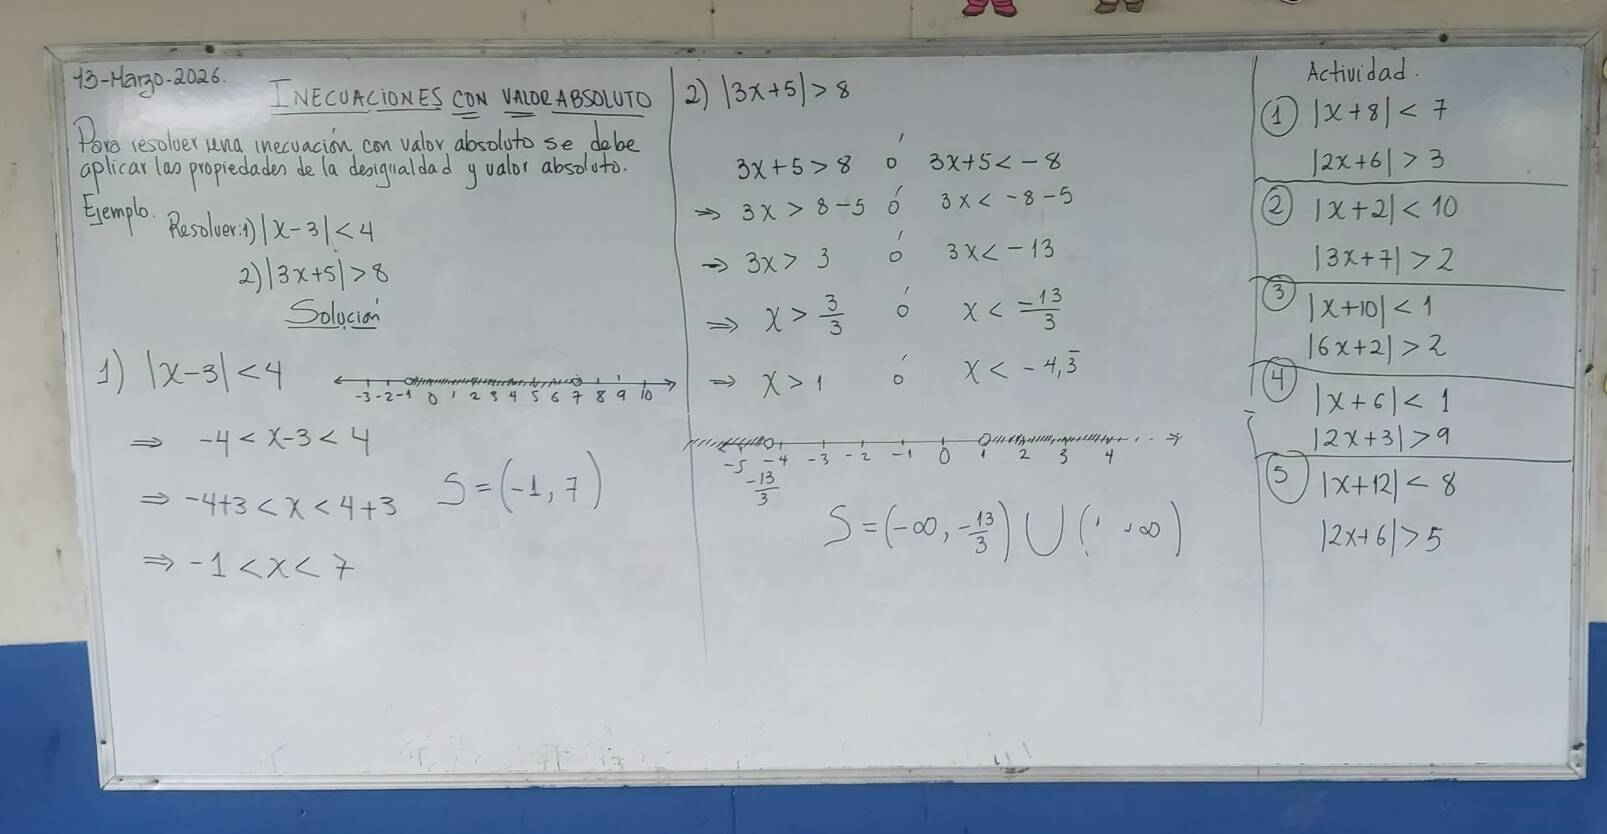 13-Marzo-2026.
INECUACIONES CON VALOR ABSOLUTO
Para resolver una inecuación con valor absoluto se debe
aplicar las propiedades de la desigualdad y valor absoluto.
Ejemplo.
Resolver: 1) |x-3| < 4
2) |3x+5| > 8
Solución
1) |x-3| < 4
-3 -2 -1 0 1 2 3 4 5 6 7 8 9 10
⇒ -4 < x-3 < 4
⇒ -4+3 < x < 4+3
S = (-1, 7)
⇒ -1 < x < 7
2) |3x+5| > 8
3x+5 > 8 ó 3x+5 < -8
⇒ 3x > 8-5 ó 3x < -8-5
⇒ 3x > 3 ó 3x < -13
⇒ x > 3/3 ó x < -13/3
⇒ x > 1 ó x < -4,3̅
-5 -4 -3 -2 -1 0 1 2 3 4
-13/3
S = (-∞, -13/3) ∪ ( ∞)
Actividad.
① |x+8| < 7
|2x+6| > 3
② |x+2| < 10
|3x+7| > 2
③ |x+10| < 1
|6x+2| > 2
④ |x+6| < 1
|2x+3| > 9
⑤ |x+12| < 8
|2x+6| > 5